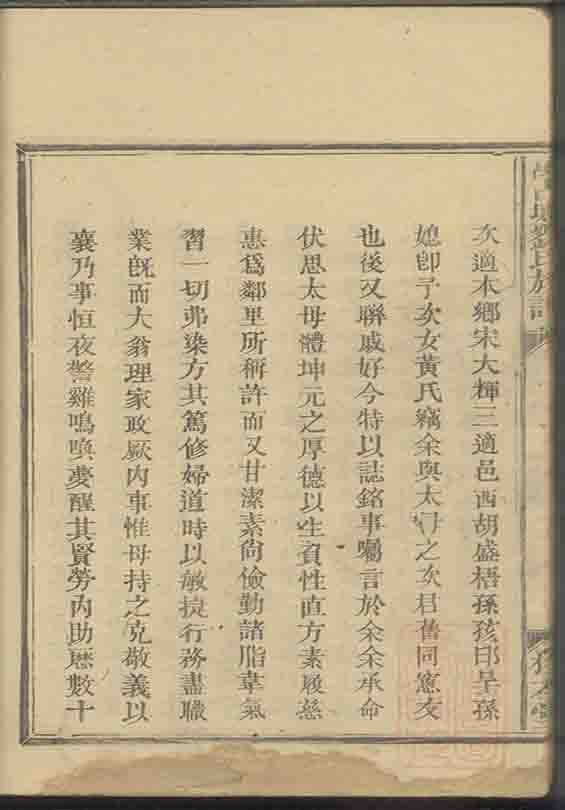 氏族譜
次適本鄉宋大輝三適邑西胡盛梧孫孩郎呈孫
媳卽予次女黃氏竊余與太母之次君舊同窻友
也後又聯戚好今特以誌銘事囑言於余余承命
伏思太母體坤元之厚德以生資性直方素履慈
惠爲鄰里所稱許而又甘潔素尙儉勤諸脂韋氣
習一切弗染方其篤修婦道時以敏㨗行務盡職
業旣而大翁理家政厥內事惟母持之克敬義以
襄乃事恒夜警雞鳴喚夢醒其賢勞內助歷數十